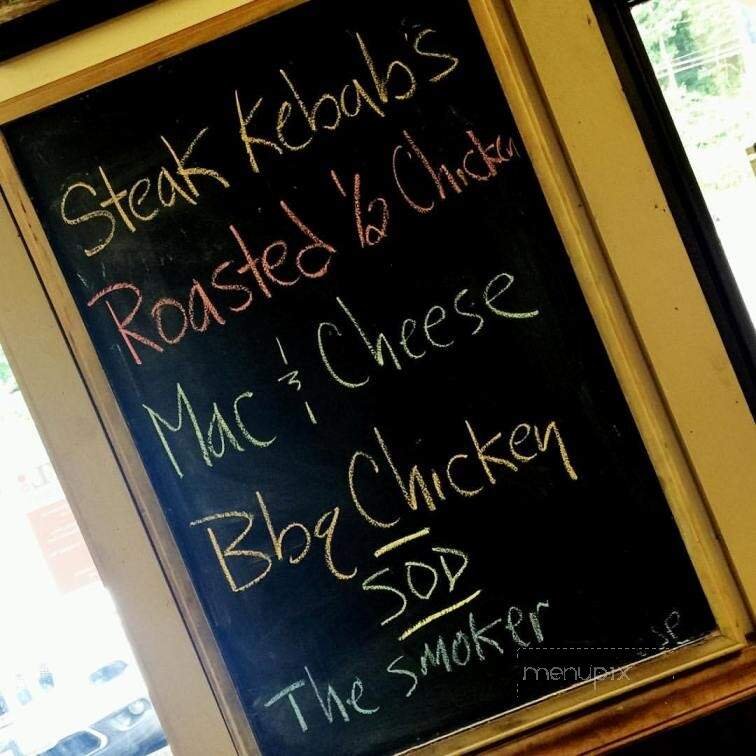 Steak Kebab's
Roasted 1/2 Chicken
Mac & Cheese
Bbq Chicken
SOD
The smoker
menupix